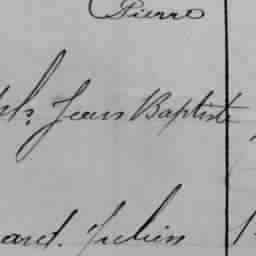 Pierre
ph, Jean Baptiste
ard. Julien